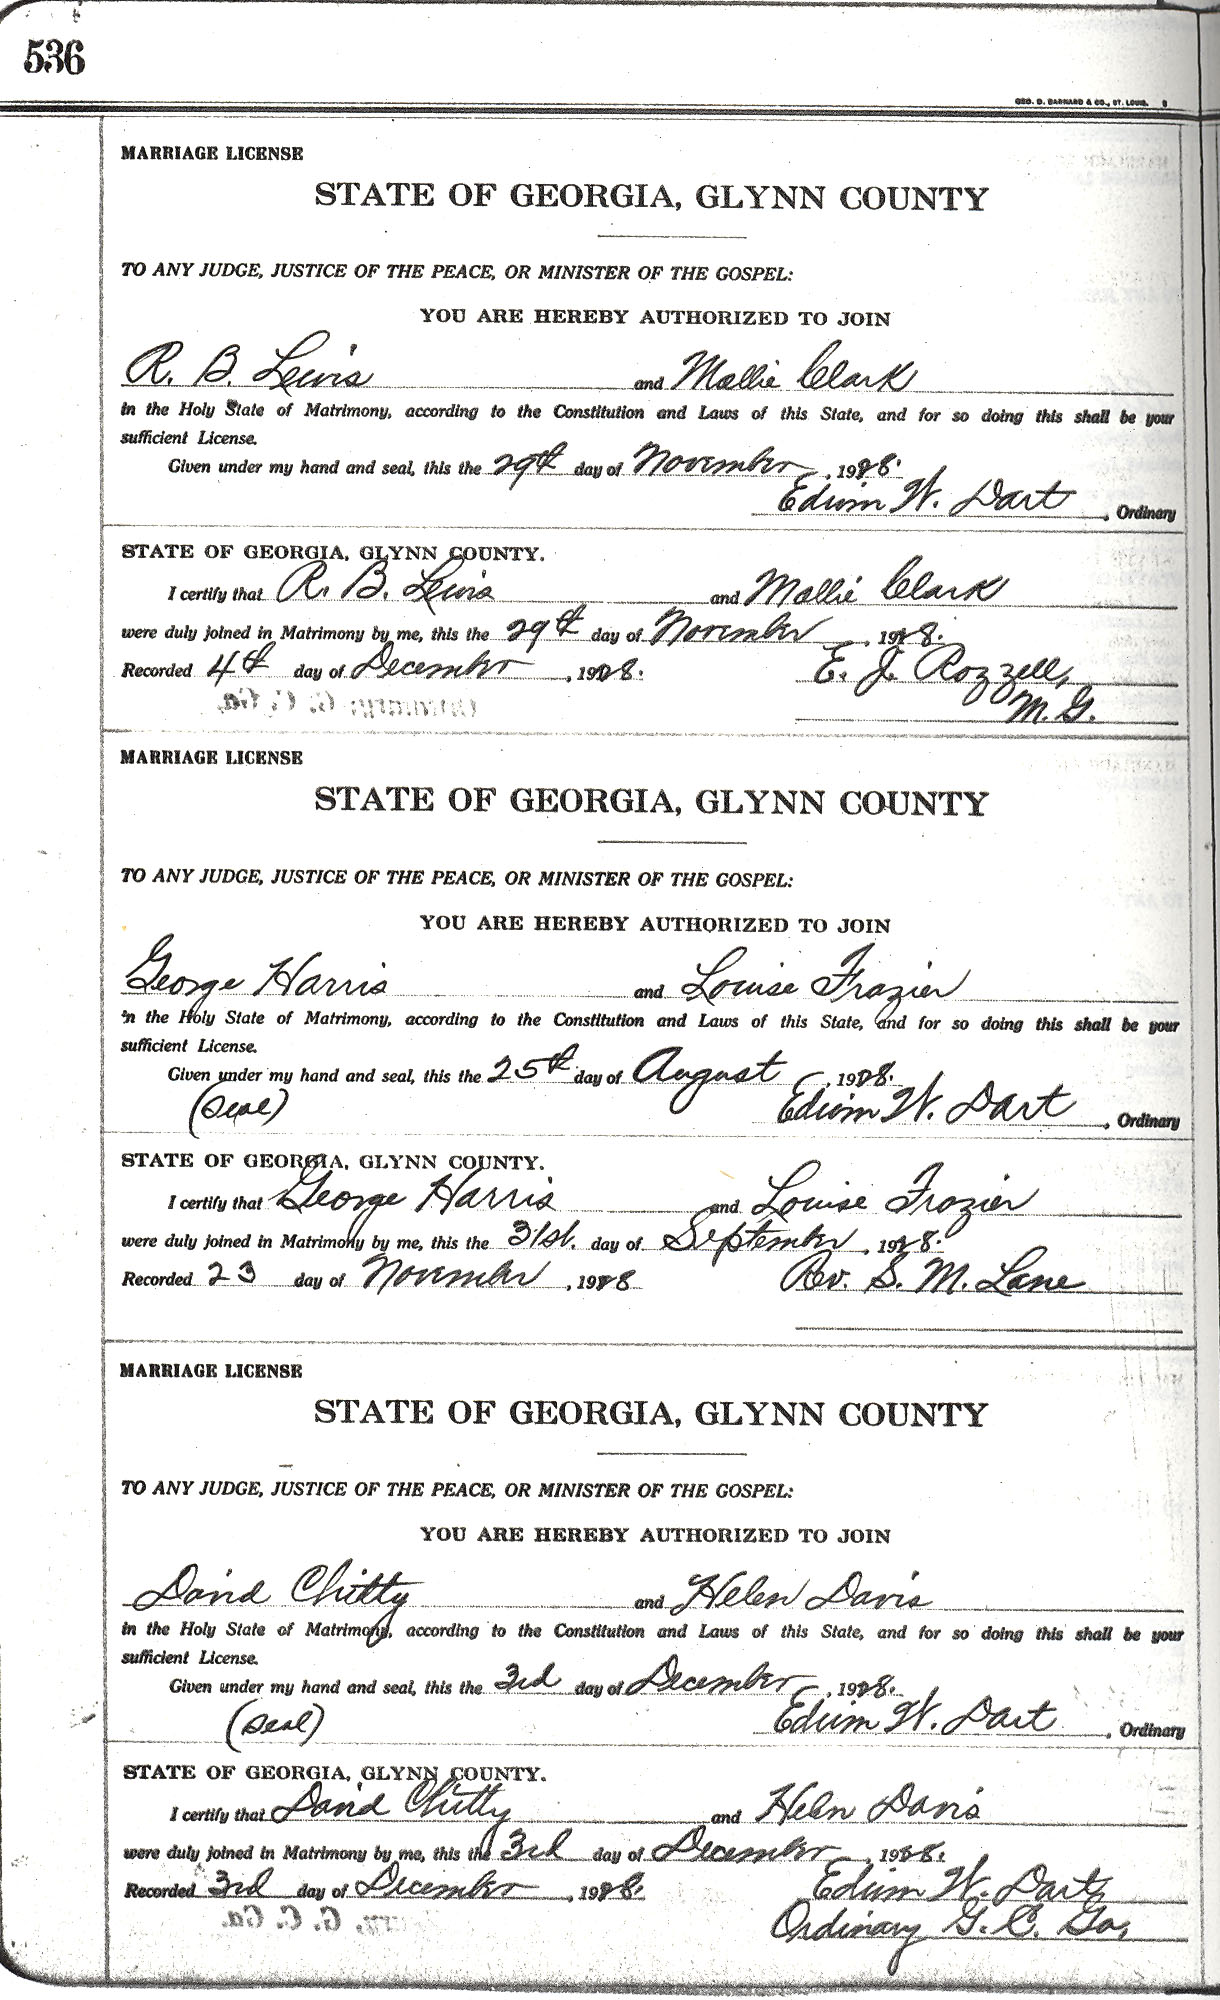 536
GEO. D. BARNARD & CO., ST. LOUIS.
MARRIAGE LICENSE
STATE OF GEORGIA, GLYNN COUNTY
TO ANY JUDGE, JUSTICE OF THE PEACE, OR MINISTER OF THE GOSPEL:
YOU ARE HEREBY AUTHORIZED TO JOIN
R. B. Lewis and Mollie Clark
in the Holy State of Matrimony, according to the Constitution and Laws of this State, and for so doing this shall be your
sufficient License.
Given under my hand and seal, this the 29th day of November, 1928.
Edwin W. Dart, Ordinary
STATE OF GEORGIA, GLYNN COUNTY.
I certify that R. B. Lewis and Mollie Clark
were duly joined in Matrimony by me, this the 29th day of November, 1928.
Recorded 4th day of December, 1928. E. J. Rozzell,
M. G.
MARRIAGE LICENSE
STATE OF GEORGIA, GLYNN COUNTY
TO ANY JUDGE, JUSTICE OF THE PEACE, OR MINISTER OF THE GOSPEL:
YOU ARE HEREBY AUTHORIZED TO JOIN
George Harris and Louise Frazier
in the Holy State of Matrimony, according to the Constitution and Laws of this State, and for so doing this shall be your
sufficient License.
Given under my hand and seal, this the 25th day of August, 1928.
(Seal) Edwin W. Dart, Ordinary
STATE OF GEORGIA, GLYNN COUNTY.
I certify that George Harris and Louise Frozier
were duly joined in Matrimony by me, this the 31st. day of September, 1928.
Recorded 23 day of November, 1928 Rev. S. M. Lane
MARRIAGE LICENSE
STATE OF GEORGIA, GLYNN COUNTY
TO ANY JUDGE, JUSTICE OF THE PEACE, OR MINISTER OF THE GOSPEL:
YOU ARE HEREBY AUTHORIZED TO JOIN
David Chitty and Helen Davis
in the Holy State of Matrimony, according to the Constitution and Laws of this State, and for so doing this shall be your
sufficient License.
Given under my hand and seal, this the 3rd day of December, 1928.
(Seal) Edwin W. Dart, Ordinary
STATE OF GEORGIA, GLYNN COUNTY.
I certify that David Chitty and Helen Davis
were duly joined in Matrimony by me, this the 3rd day of December, 1928.
Recorded 3rd day of December, 1928. Edwin W. Dart,
Ordinary G. C. Ga.